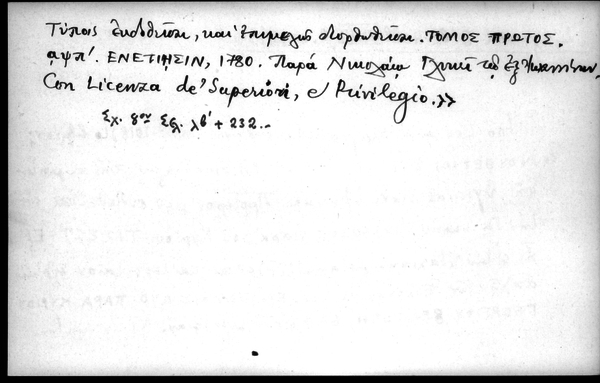 Τύποις ἐκδοθεῖσαι, καὶ ἐπιμελῶς διορθωθεῖσαι. ΤΟΜΟΣ ΠΡΩΤΟΣ.
αψπ'. ΕΝΕΤΙΗΣΙΝ, 1780. Παρὰ Νικολάῳ Γλυκεῖ τῷ ἐξ Ἰωαννίνων.
Con Licenza de' Superiori, e Privilegio.»
Σχ. 8ον Σελ. λβ' + 232.-